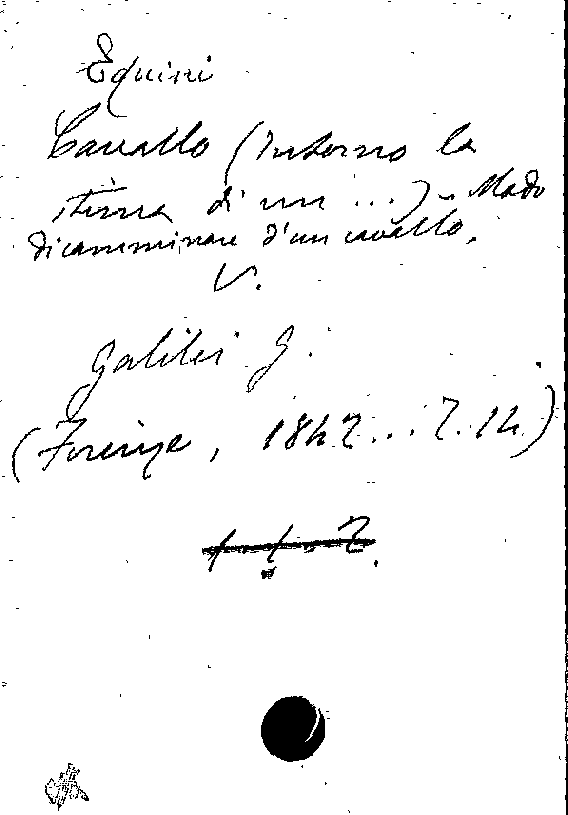 Equini
Cavallo (Intorno la
stima di un ...) - Modo
di camminare d'un cavallo.
V.
Galilei G.
(Firenze, 1842... T. 14)